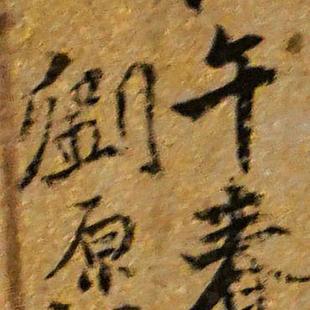 午春
劉原